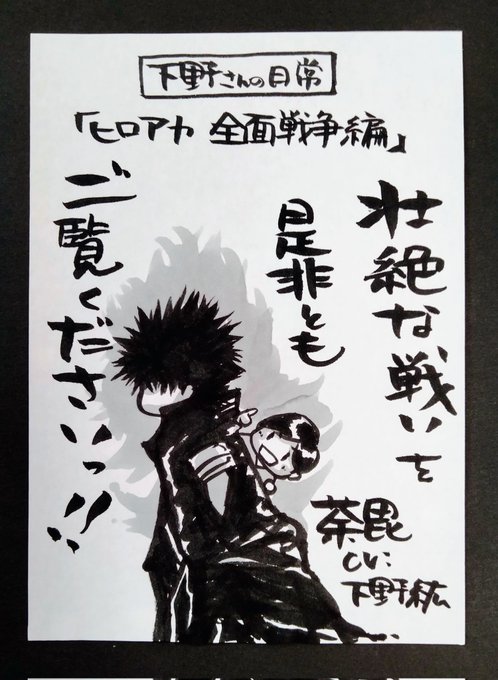 下野さんの日常
「ヒロアカ 全面戦争編」
壮絶な戦いを
是非とも
ご覧くださいっ!!
荼毘
CV:
下野紘